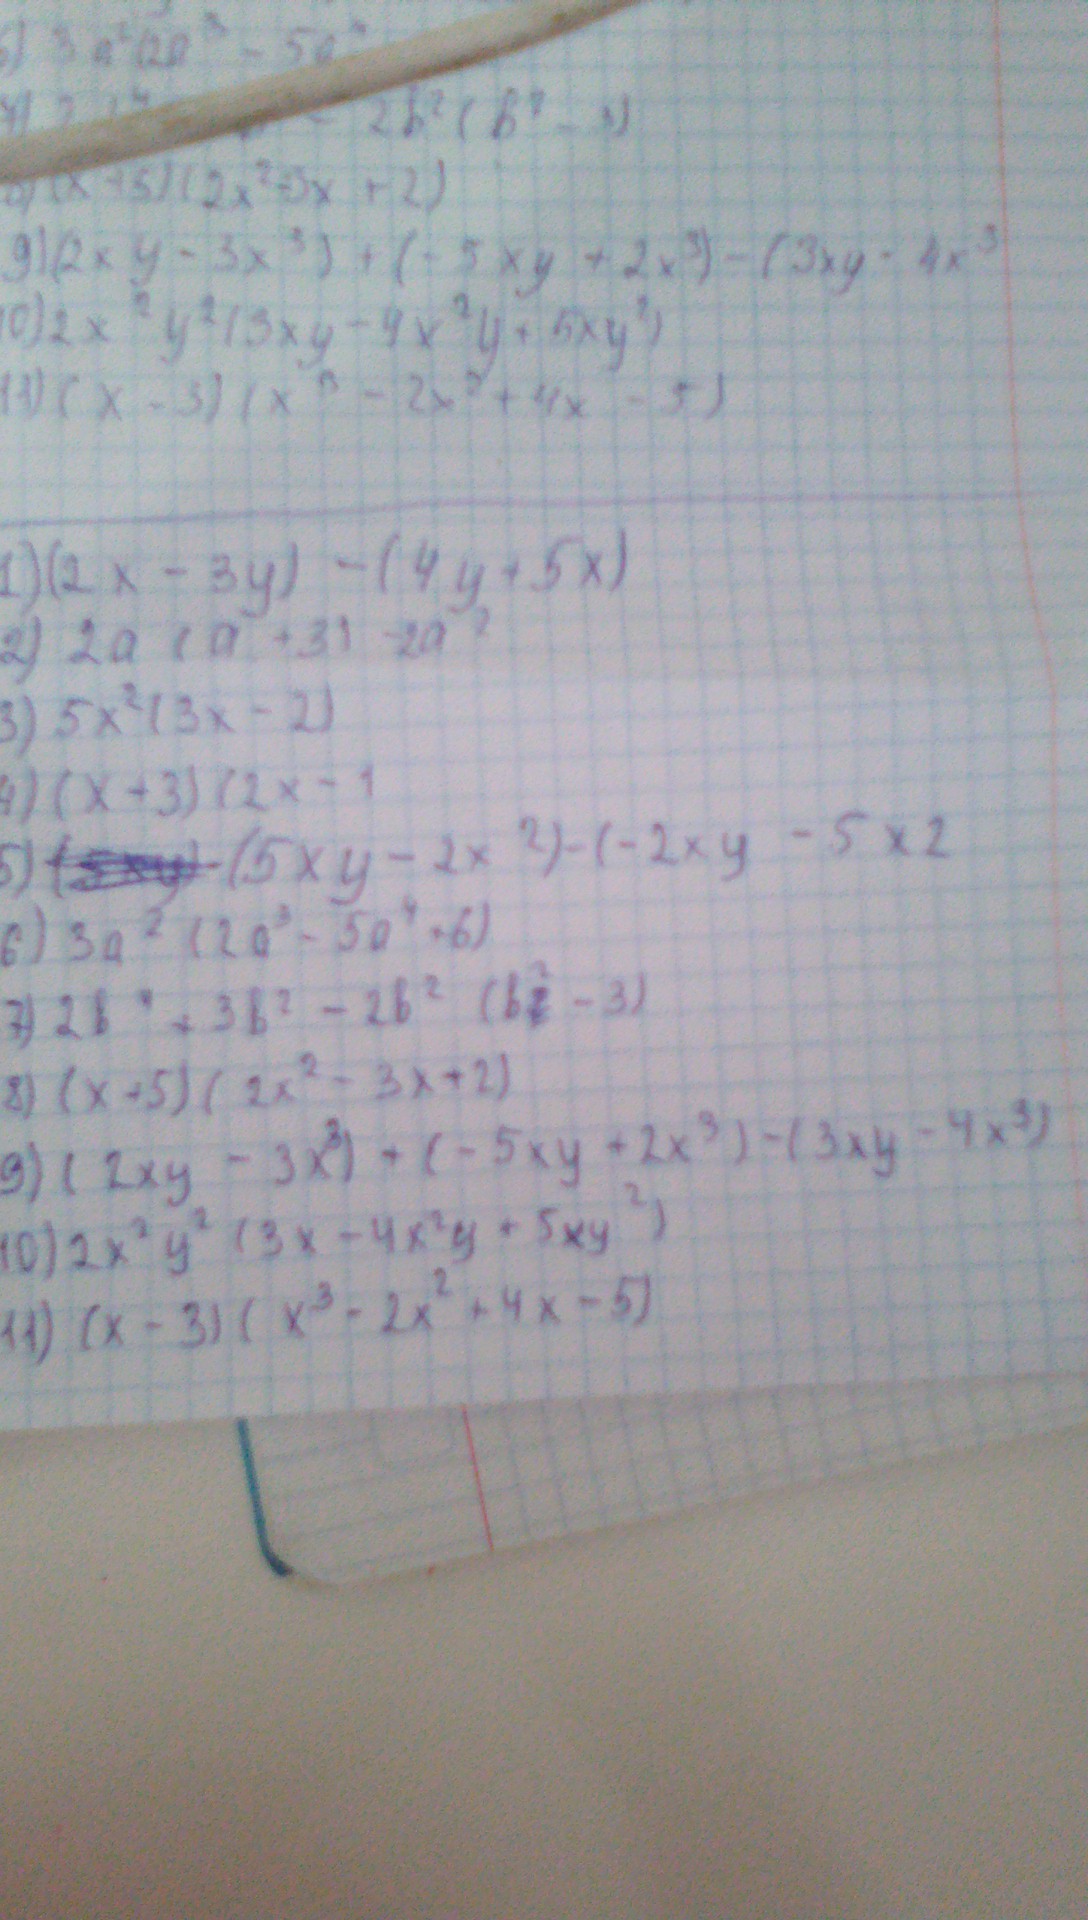 6) 3a²(2a³ - 5a⁴
- 2b²(b² - 3)
8) (x+5)(2x²-3x + 2)
9)(2xy - 3x³) + (-5xy + 2x³) - (3xy - 4x³
10)2x²y²(3xy - 4x²y + 5xy²)
11)(x - 3)(x³ - 2x² + 4x - 5)
1)(2x - 3y) - (4y + 5x)
2) 2a (a + 3) - 2a²
3) 5x²(3x - 2)
4) (x+3)(2x - 1
5) (5xy - 2x²) - (-2xy - 5x2
6) 3a² (2a³ - 5a⁴ + 6)
7) 2b⁴ + 3b² - 2b² (b² - 3)
8) (x+5)(2x² - 3x+2)
9) (2xy - 3x³) + (-5xy + 2x³) - (3xy - 4x³)
10) 2x²y² (3x - 4x²y + 5xy²)
11) (x - 3)(x³ - 2x² + 4x - 5)